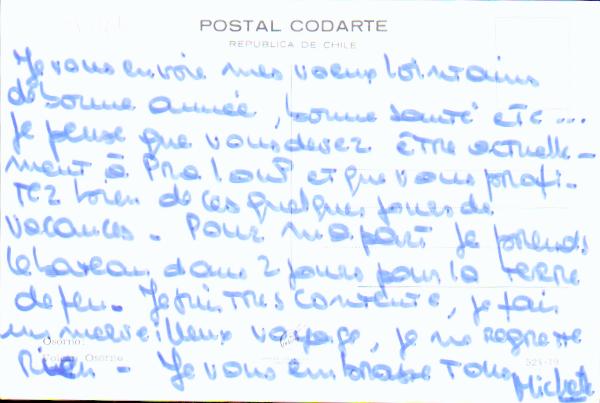 POSTAL CODARTE
REPUBLICA DE CHILE
Je vous envoie mes vœux lointains
de bonne année, bonne santé etc ...
Je pense que vous devez être actuelle-
ment à Pralouf et que vous profi-
tez bien de ces quelques jours de
vacances - Pour ma part je prends
le bateau dans 2 jours pour la terre
de feu. Je suis très contente, je fais
un merveilleux voyage, je ne regrette
Rien - Je vous embrasse tous
Michèle
Osorno:
Volcán Osorno